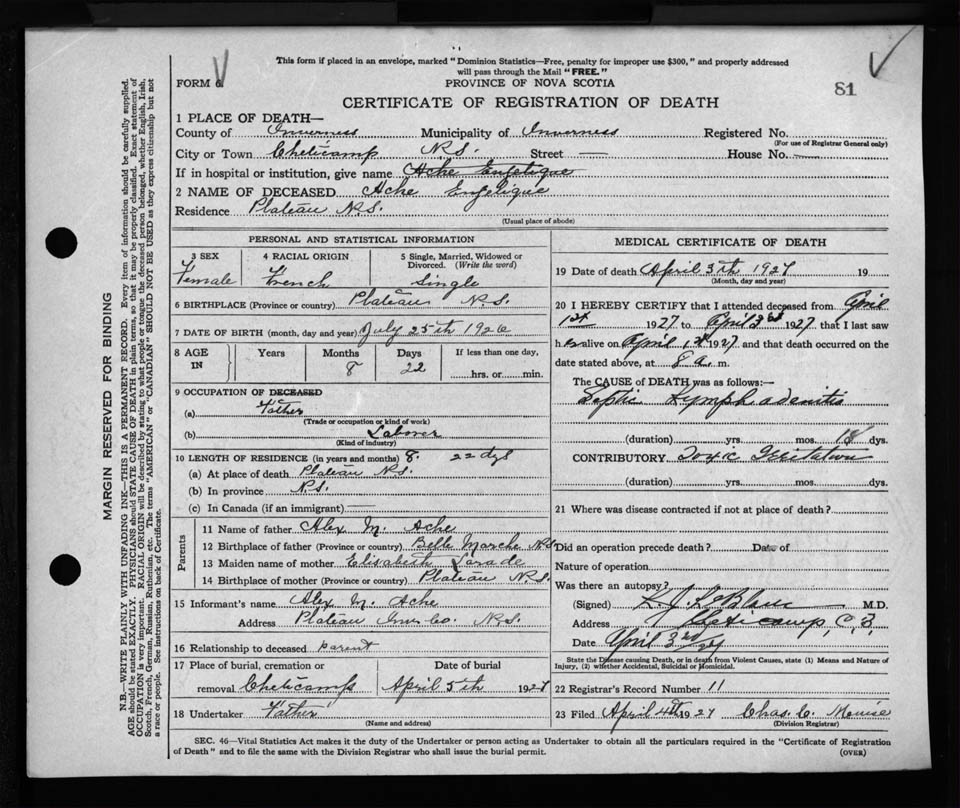 This form if placed in an envelope, marked "Dominion Statistics—Free, penalty for improper use $300," and properly addressed
will pass through the Mail "FREE."
FORM 6
PROVINCE OF NOVA SCOTIA
81
CERTIFICATE OF REGISTRATION OF DEATH
1 PLACE OF DEATH—
County of Inverness Municipality of Inverness Registered No.
(For use of Registrar General only)
City or Town Cheticamp N.S. Street — House No. —
If in hospital or institution, give name Ache Enjelique
2 NAME OF DECEASED Ache Enjelique
Residence Plateau N.S.
(Usual place of abode)
PERSONAL AND STATISTICAL INFORMATION
3 SEX 4 RACIAL ORIGIN 5 Single, Married, Widowed or
Divorced. (Write the word)
Female French Single
6 BIRTHPLACE (Province or country) Plateau N.S.
7 DATE OF BIRTH (month, day and year) July 25th 1926
8 AGE Years Months Days If less than one day,
IN 8 22 hrs. or min.
9 OCCUPATION OF DECEASED
(a) Father
(Trade or occupation or kind of work)
(b) Laborer
(Kind of industry)
10 LENGTH OF RESIDENCE (in years and months) 8. 22 dys
(a) At place of death Plateau N.S.
(b) In province N.S.
(c) In Canada (if an immigrant)
Parents
11 Name of father Alex M. Ache
12 Birthplace of father (Province or country) Belle Marche N.S.
13 Maiden name of mother Elisabeth Larade
14 Birthplace of mother (Province or country) Plateau N.S.
15 Informant's name Alex M. Ache
Address Plateau Inv. Co. N.S.
16 Relationship to deceased parent
17 Place of burial, cremation or Date of burial
removal Cheticamp April 5th 1927
18 Undertaker Father
(Name and address)
MEDICAL CERTIFICATE OF DEATH
19 Date of death April 3th 1927 19
(Month, day and year)
20 I HEREBY CERTIFY that I attended deceased from April
1st 1927 to April 3rd 1927 that I last saw
her alive on April 1st 1927 and that death occurred on the
date stated above, at 8 a. m.
The CAUSE of DEATH was as follows:—
Septic Lymphadenitis
(duration) yrs. mos. 18 dys.
CONTRIBUTORY Toxic
(duration) yrs. mos. dys.
21 Where was disease contracted if not at place of death?
Did an operation precede death? Date of
Nature of operation
Was there an autopsy?
(Signed) LeBlanc M.D.
Address Cheticamp, C.B.
Date April 3rd 27
State the Disease causing Death, or in death from Violent Causes, state (1) Means and Nature of
Injury, (2) whether Accidental, Suicidal or Homicidal.
22 Registrar's Record Number 11
23 Filed April 4th 1927 Chas. C.
(Division Registrar)
SEC. 46—Vital Statistics Act makes it the duty of the Undertaker or person acting as Undertaker to obtain all the particulars required in the "Certificate of Registration
of Death" and to file the same with the Division Registrar who shall issue the burial permit.
(OVER)
MARGIN RESERVED FOR BINDING
N.B.—WRITE PLAINLY WITH UNFADING INK—THIS IS A PERMANENT RECORD. Every item of information should be carefully supplied.
AGE should be stated EXACTLY. PHYSICIANS should STATE CAUSE OF DEATH in plain terms, so that it may be properly classified. Exact statement of
OCCUPATION is very important. RACIAL ORIGIN will be described by stating to what people or tongue the deceased person belonged, whether English, Irish,
Scotch, French, German, Russian, Ruthenian, etc. The terms "AMERICAN" or "CANADIAN" SHOULD NOT BE USED as they express citizenship but not
a race or people. See instructions on back of Certificate.